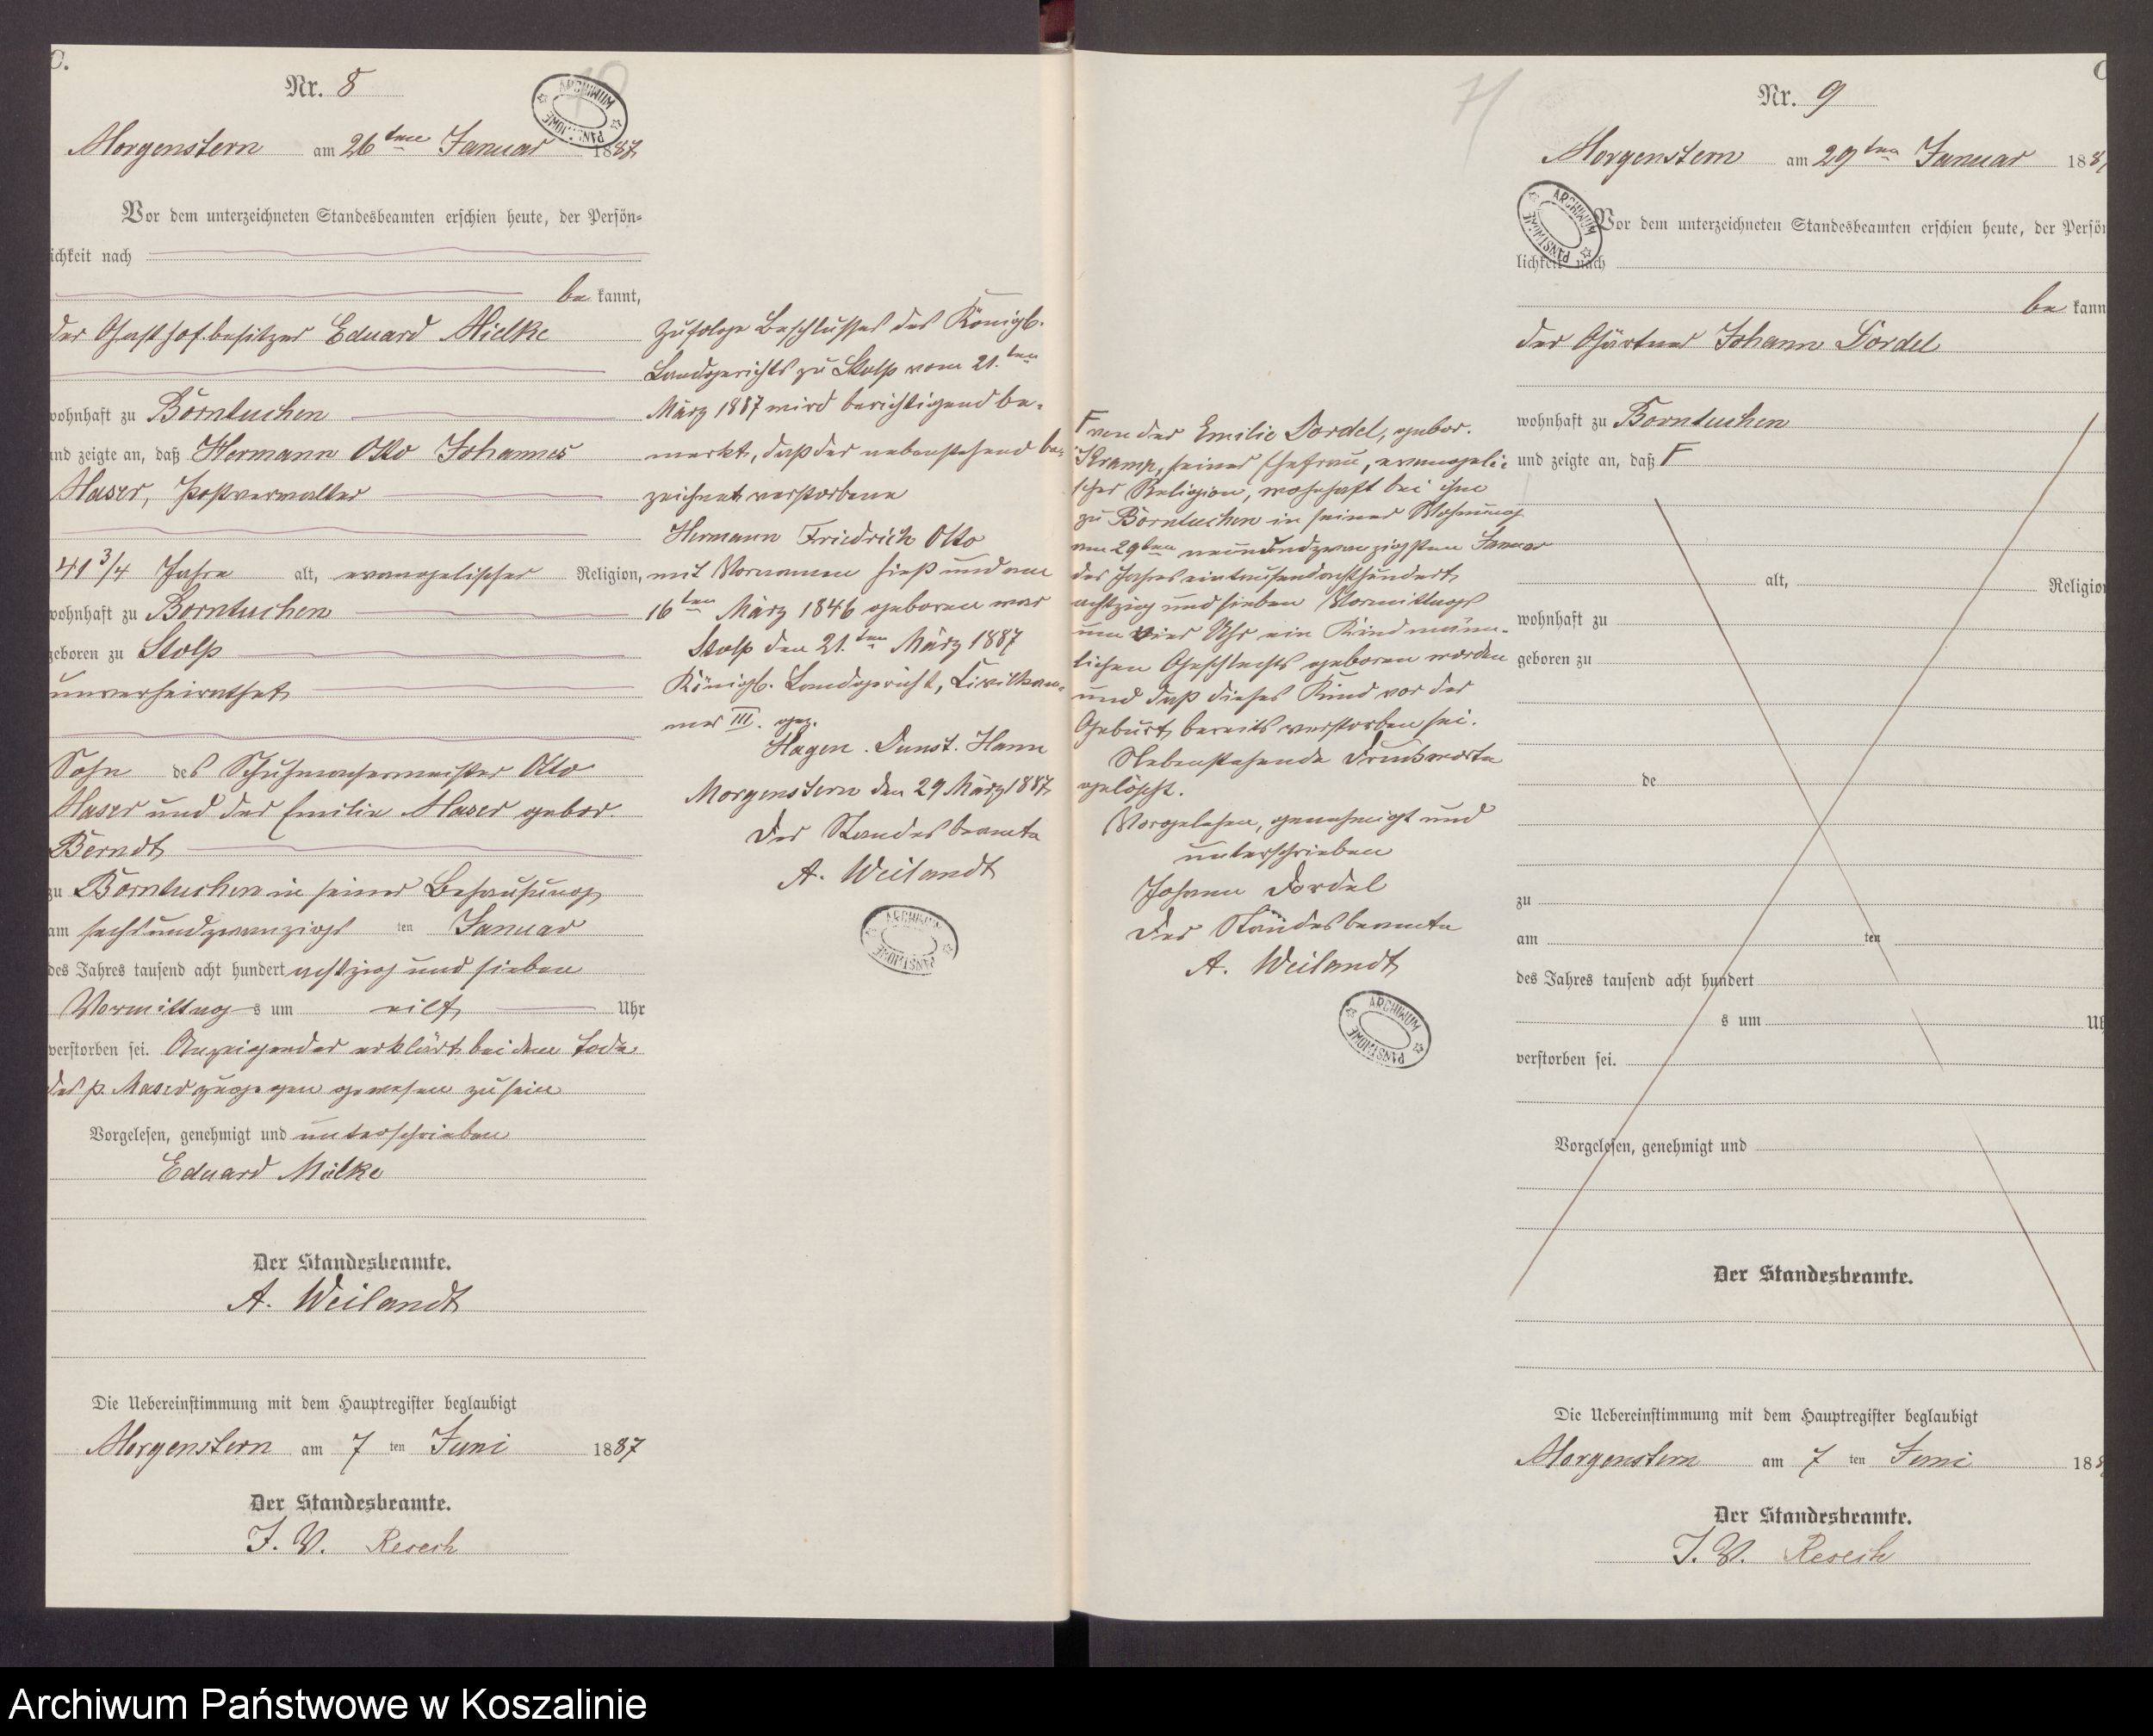 C.
Nr. 8
Morgenstern am 26ten Januar 1887
Vor dem unterzeichneten Standesbeamten erschien heute, der Persön-
lichkeit nach
be kannt,
der Gasthofbesitzer Eduard Mielke
wohnhaft zu Borntuchen
und zeigte an, daß Hermann Otto Johannes
Maser, Postverwalter
41 3/4 Jahre alt, evangelischer Religion,
wohnhaft zu Borntuchen
geboren zu Stolp
unverheirathet
Sohn des Schuhmachermeister Otto
Maser und der Emilie Maser gebor.
Berndt
zu Borntuchen in seiner Behausung
am sechsundzwanzigs ten Januar
des Jahres tausend acht hundert achtzig und sieben
Vormittag s um eilf Uhr
verstorben sei. Anzeigender erklärt bei dem Tode
des p. Maser zugegen gewesen zu sein
Vorgelesen, genehmigt und unterschrieben
Eduard Mielke
Der Standesbeamte.
A. Weilandt
Die Uebereinstimmung mit dem Hauptregister beglaubigt
Morgenstern am 7 ten Juni 1887
Der Standesbeamte.
J. V. Resech
Zufolge Beschlusses des Königl.
Landgerichts zu Stolp vom 21.ten
März 1887 wird berichtigend be-
merkt, daß der nebenstehend be-
zeichnet verstorbene
Hermann Friedrich Otto
mit Vornamen hieß und am
16ten März 1846 geboren war
Stolp den 21.ten März 1887
Königl. Landgericht, Civilkam-
mer III. gez.
Hagen. Dunst. Hann
Morgenstern den 29 März 1887
Der Standesbeamte
A. Weilandt
ARCHIWUM PAŃSTWOWE
71
F von der Emilie Dordel, gebor.
Kramp, seiner Ehefrau, evangeli-
scher Religion, wohnhaft bei ihm
zu Borntuchen in seiner Wohnung
am 29ten neunundzwanzigsten Januar
des Jahres eintausendachthundert
achtzig und sieben Vormittags
um vier Uhr ein Kind männ-
lichen Geschlechts geboren worden
und daß dieses Kind vor der
Geburt bereits verstorben sei.
Nebenstehende Druckworte
gelöscht.
Vorgelesen, genehmigt und
unterschrieben
Johann Dordel
Der Standesbeamte
A. Weilandt
ARCHIWUM PAŃSTWOWE
C
Nr. 9
Morgenstern am 29ten Januar 188
Vor dem unterzeichneten Standesbeamten erschien heute, der Persön
lichkeit nach
be kann
der Gärtner Johann Dordel
wohnhaft zu Borntuchen
und zeigte an, daß F
alt, Religion
wohnhaft zu
geboren zu
de
zu
am ten
des Jahres tausend acht hundert
s um Uh
verstorben sei.
Vorgelesen, genehmigt und
Der Standesbeamte.
Die Uebereinstimmung mit dem Hauptregister beglaubigt
Morgenstern am 7 ten Juni 188
Der Standesbeamte.
J. V. Resech
Archiwum Państwowe w Koszalinie